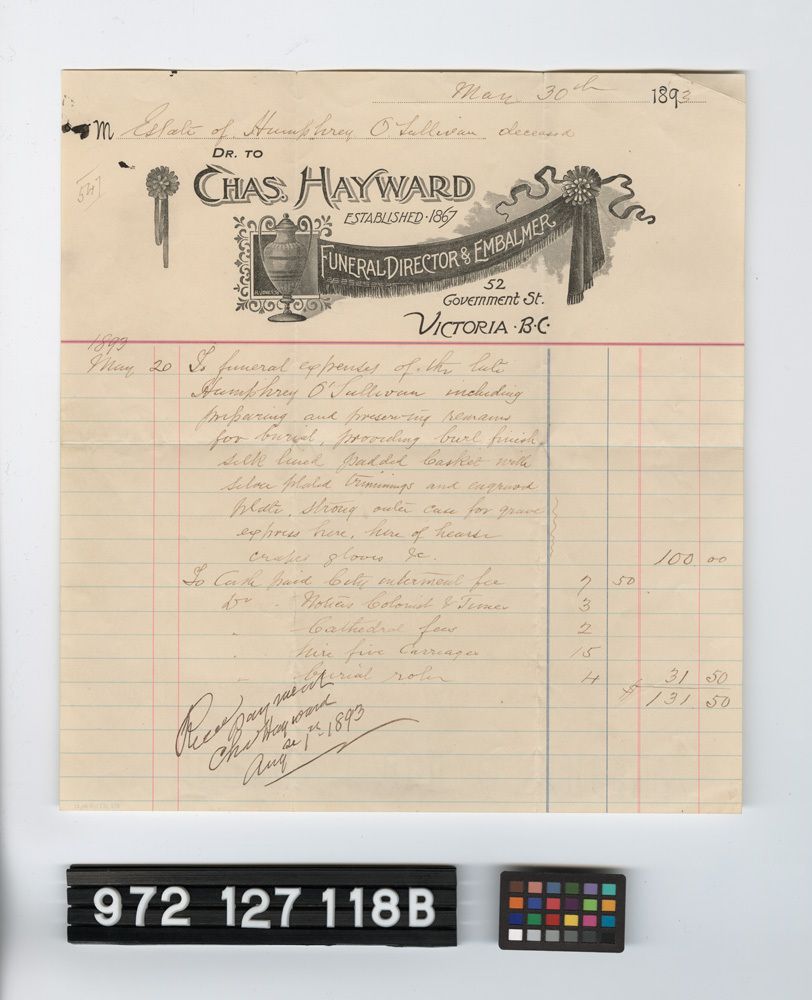 May 30th 1893
M Estate of Humphrey O'Sullivan deceased
DR. TO
541
CHAS. HAYWARD
ESTABLISHED·1867
FUNERAL DIRECTOR & EMBALMER
52
Government St.
VICTORIA·B·C·
1893
May 20 To funeral expenses of the late
Humphrey O'Sullivan including
preparing and preserving remains
for burial, providing burl finish,
silk lined padded Casket with
silver plated trimmings and engraved
plate, strong outer case for grave
express hire, hire of hearse
crapes gloves &c. 100 00
To Cash paid City interment fee 7 50
Do " Notices Colonist & Times 3
" Cathedral fees 2
" hire five Carriages 15
" Burial robe 4 31 50
$ 131 50
Recd payment
Chs Hayward
Aug 1st 1893
972 127 118B